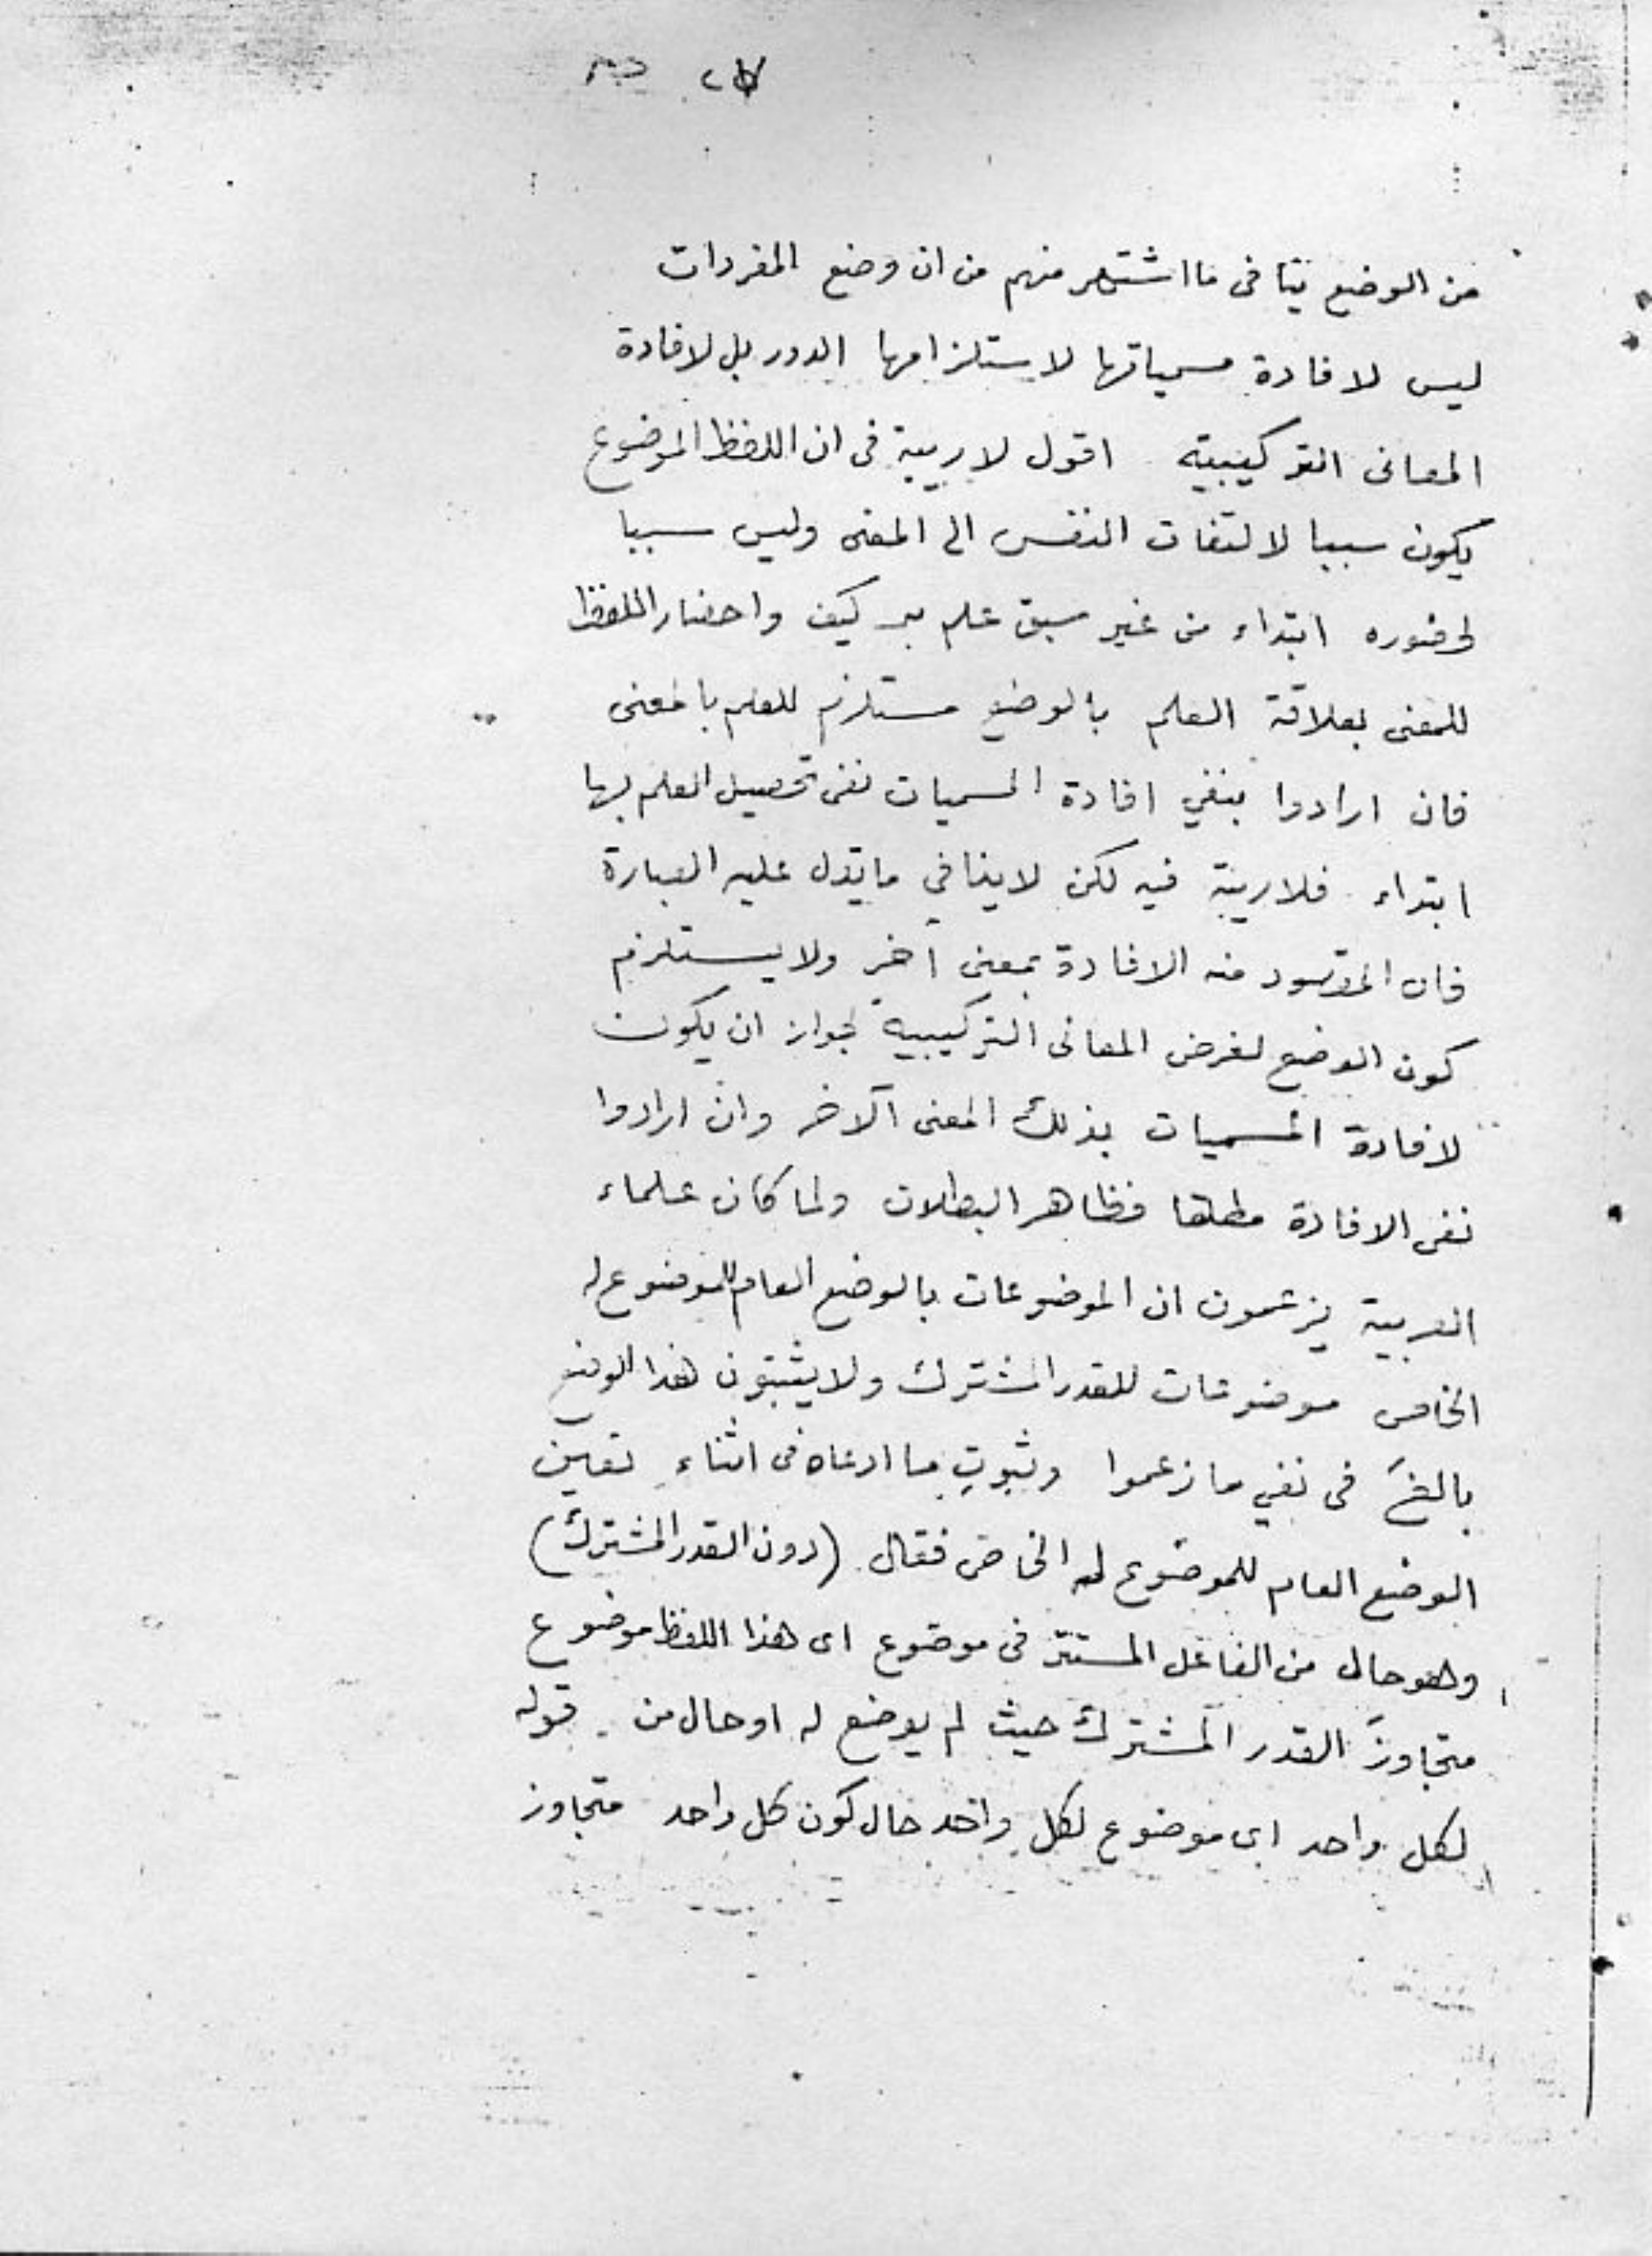 من الوضع ينافى ما اشتهر منهم من ان وضع المفردات
ليس لافادة مسمياتها لاستلزامها الدور بل لافادة
المعانى التركيبية اقول لا ريبة فى ان اللفظ الموضوع
يكون سببا لالتفات النفس الى المعنى وليس سببا
لحضوره ابتداء من غير سبق علم به كيف واحضار اللفظ
للمعنى بعلاقة العلم بالوضع مستلزم للعلم بالمعنى
فان ارادوا بنفي افادة المسميات نفى تحصيل العلم بها
ابتداء فلا ريبة فيه لكن لا ينافي ما يدل عليه العبارة
فان المقصود منه الافادة بمعنى آخر ولا يستلزم
كون الوضع لغرض المعانى التركيبية لجواز ان يكون
لافادة المسميات بذلك المعنى الآخر وان ارادوا
نفى الافادة مطلقا فظاهر البطلان ولما كان علماء
العربية يزعمون ان الموضوعات بالوضع العام للموضوع له
الخاص موضوعات للقدر المشترك ولا يثبتون هذا الوضع
بالغَ فى نفي ما زعموا وثبوتِ ما ادعاه فى اثناءِ تعيين
الوضع العام للموضوع له الخاص فقال (دون القدر المشترك)
وهو حال من الفاعل المستتر فى موضوع اى هذا اللفظ موضوع
متجاوزَ القدر المشترك حيث لم يوضع له او حال من قوله
لكل واحد اى موضوع لكل واحد حال كون كل واحد متجاوز